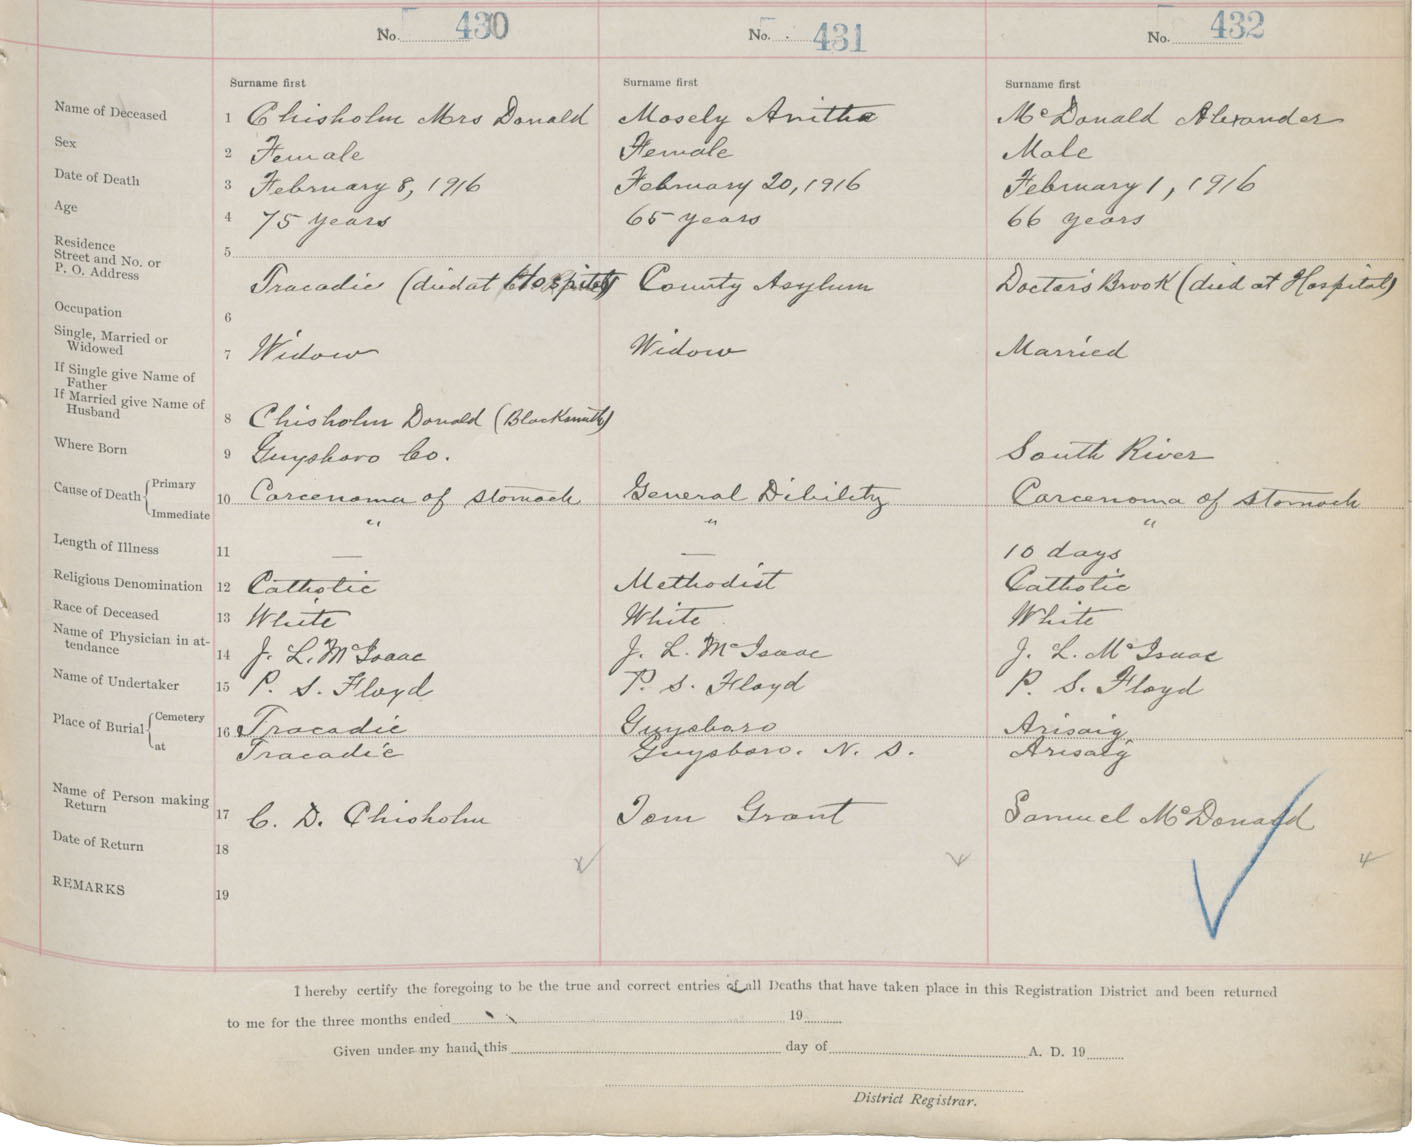 No. 430 No. 431 No. 432
Surname first Surname first Surname first
Name of Deceased 1 Chisholm Mrs Donald Mosely Anitha McDonald Alexander
Sex 2 Female Female Male
Date of Death 3 February 8, 1916 February 20, 1916 February 1, 1916
Age 4 75 years 65 years 66 years
Residence
Street and No. or 5
P. O. Address Tracadie (died at Hospital) County Asylum Doctors Brook (died at Hospital)
Occupation 6
Single, Married or
Widowed 7 Widow Widow Married
If Single give Name of
Father
If Married give Name of
Husband 8 Chisholm Donald (Blacksmith)
Where Born 9 Guysboro Co. South River
Cause of Death { Primary 10 Carcenoma of stomach General Dibility Carcenoma of stomach
Immediate " " "
Length of Illness 11 — — 10 days
Religious Denomination 12 Catholic Methodist Catholic
Race of Deceased 13 White White White
Name of Physician in at-
tendance 14 J. L. McIsaac J. L. McIsaac J. L. McIsaac
Name of Undertaker 15 P. S. Floyd P. S. Floyd P. S. Floyd
Place of Burial { Cemetery 16 Tracadie Guysboro Arisaig
at Tracadie Guysboro. N. S. Arisaig
Name of Person making
Return 17 C. D. Chisholm Tom Grant Samuel McDonald
Date of Return 18
REMARKS 19
I hereby certify the foregoing to be the true and correct entries of all Deaths that have taken place in this Registration District and been returned
to me for the three months ended 19
Given under my hand, this day of A. D. 19
District Registrar.